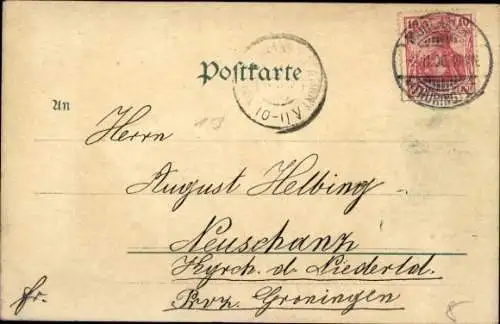 Postkarte
An
Herrn
August Helbing
Neuschanz
Kyrch. d. Liederld.
Prov. Groningen
fr.
8